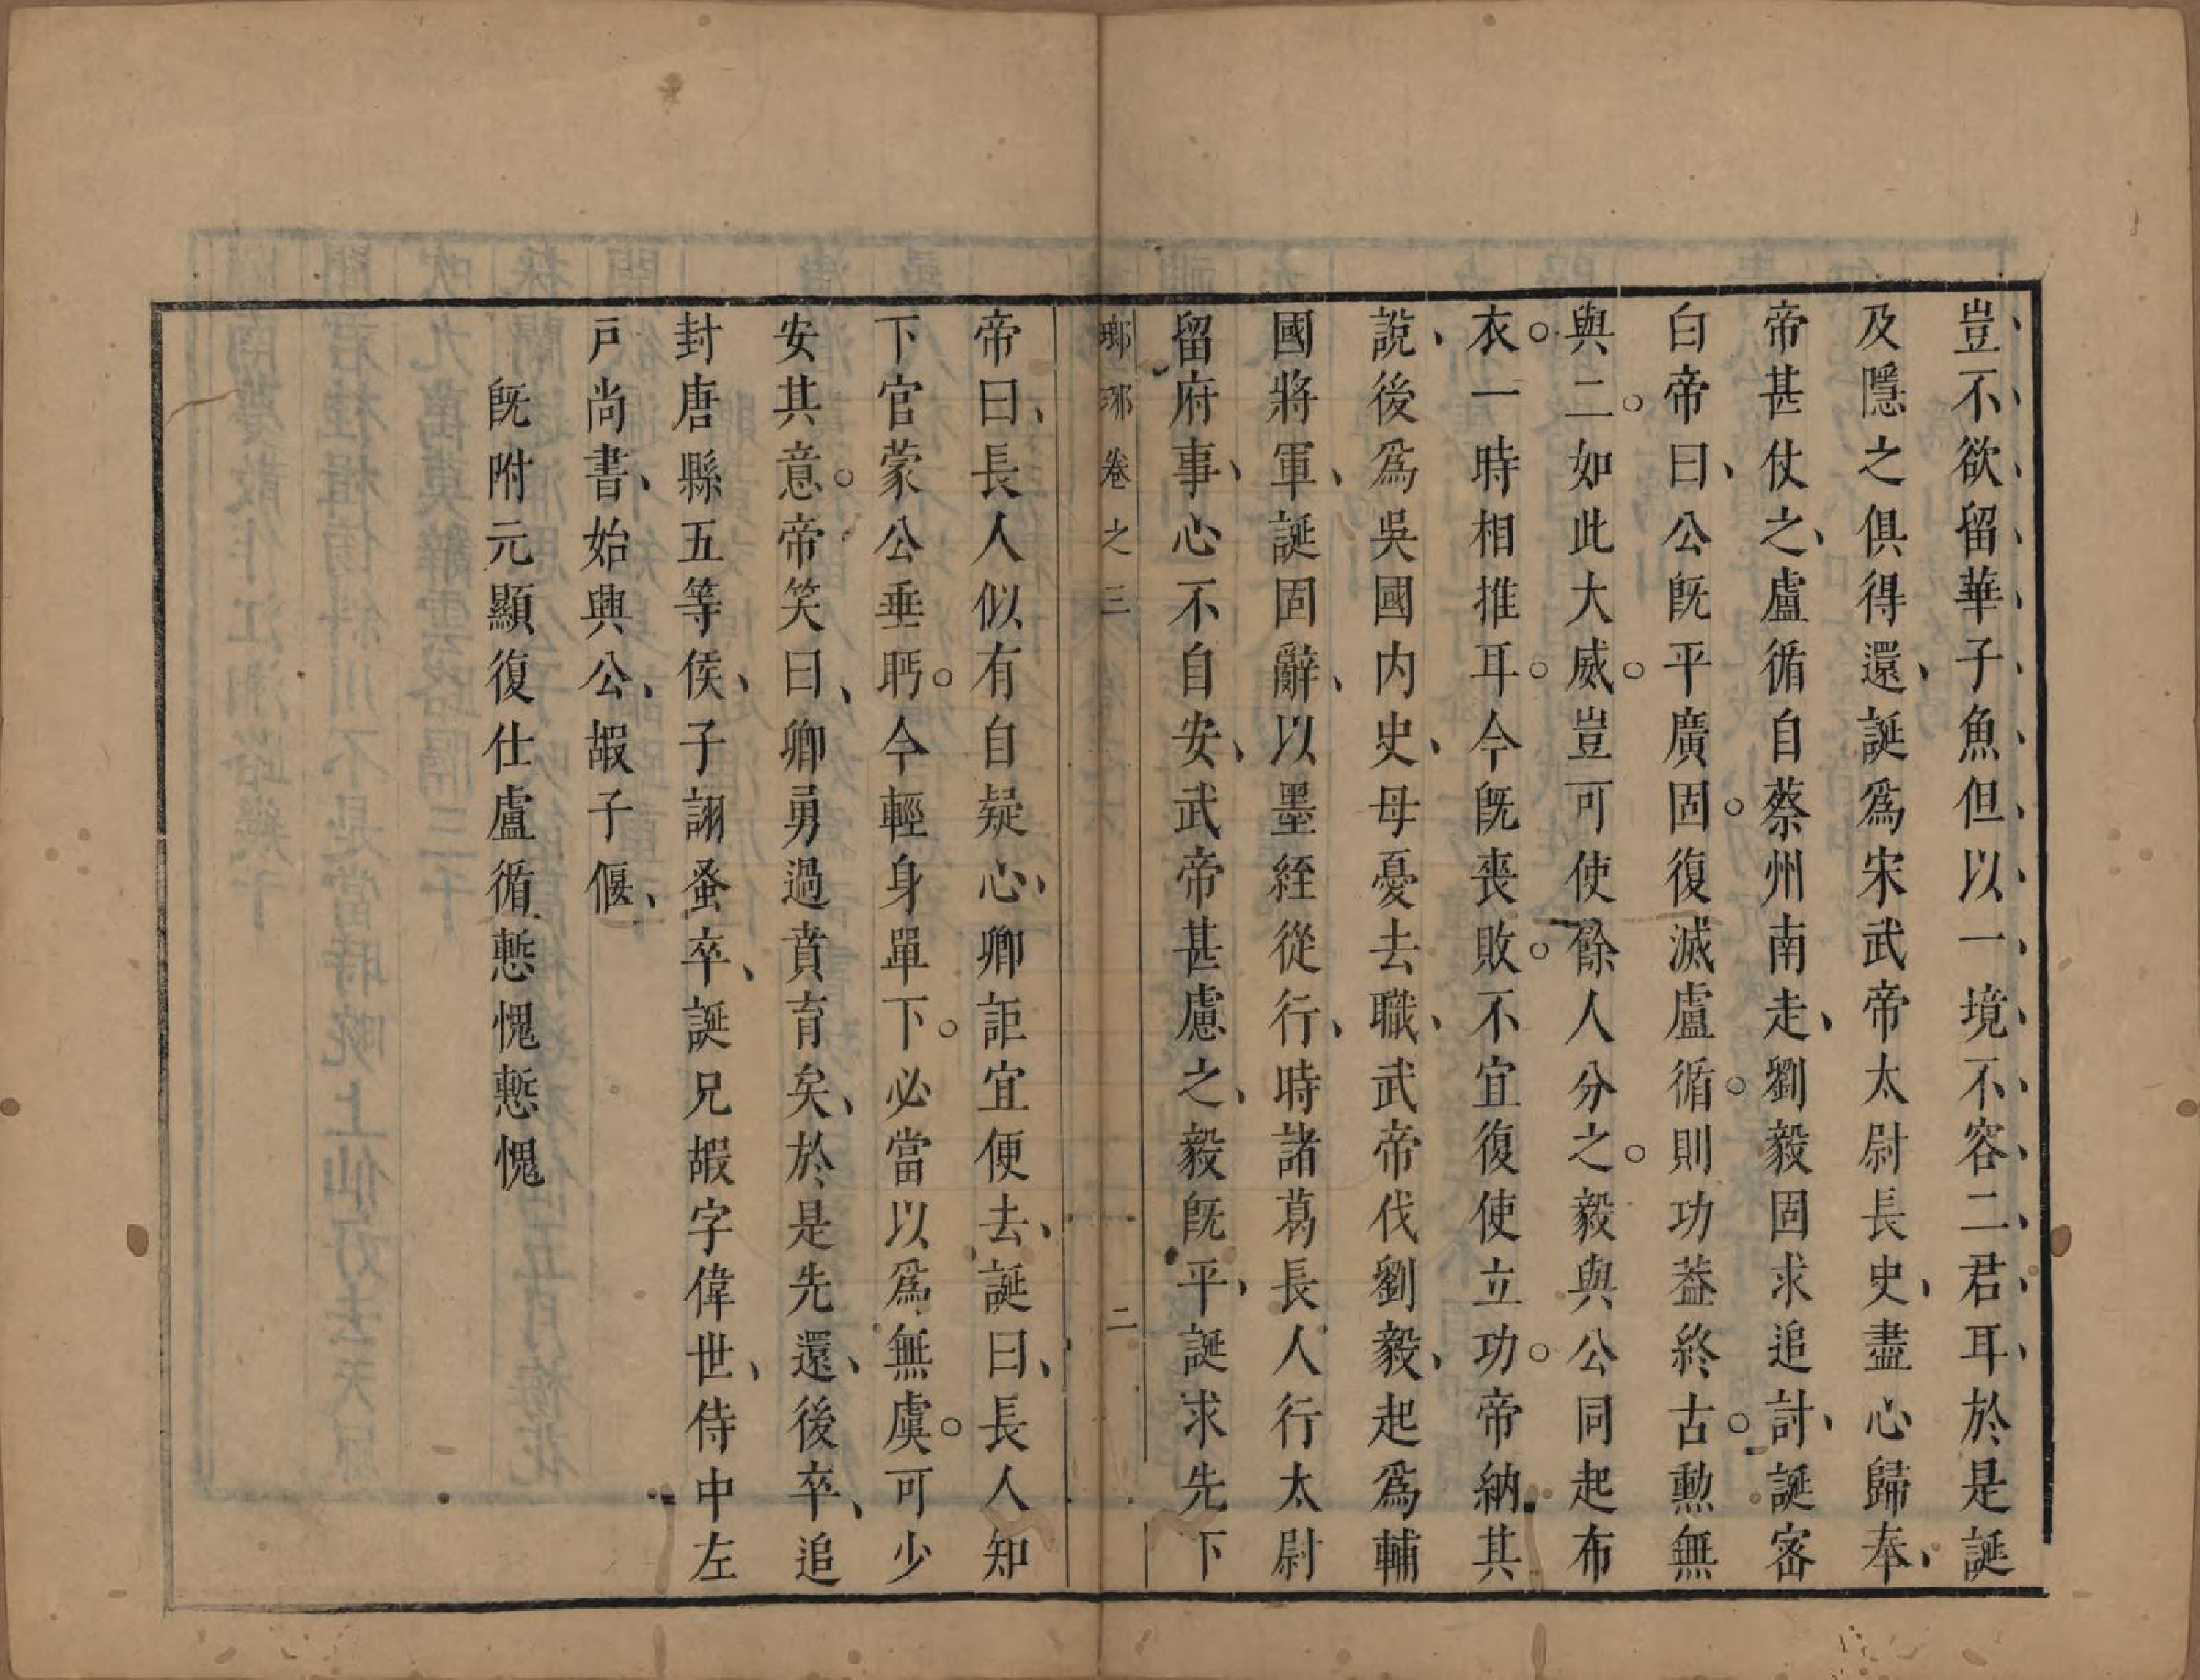 豈、不、欲、留、華、子、魚、但、以、一、境、不、容、二、君、耳、於是誕
及隱之俱得還、誕爲宋武帝太尉長史、盡心歸奉、
帝甚仗之、盧循自蔡州南走、劉毅固求追討、誕密
白帝曰、公旣平廣固。復滅盧循。則功葢終古。勲無
與二。如此大威。豈可使餘人分之。毅與公同起布
衣。一時相推耳。今旣喪敗。不宜復使立功。帝納其
說、後爲吳國内史、母憂去職、武帝伐劉毅、起爲輔
國將軍、誕固辭、以墨絰從行、時諸葛長人行太尉
留府事、心不自安、武帝甚慮之、毅旣平、誕求先下
瑯琊卷之三 二
帝曰、長人似有自疑心、卿詎宜便去、誕曰、長人知
下官蒙公垂眄。今輕身單下。必當以爲無虞。可少
安其意。帝笑曰、卿勇過賁育矣、於是先還、後卒、追
封唐縣五等侯、子詡蚤卒、誕兄嘏字偉世、侍中左
戸尚書、始興公、嘏子偃、
旣附元顯復仕盧循慙愧慙愧